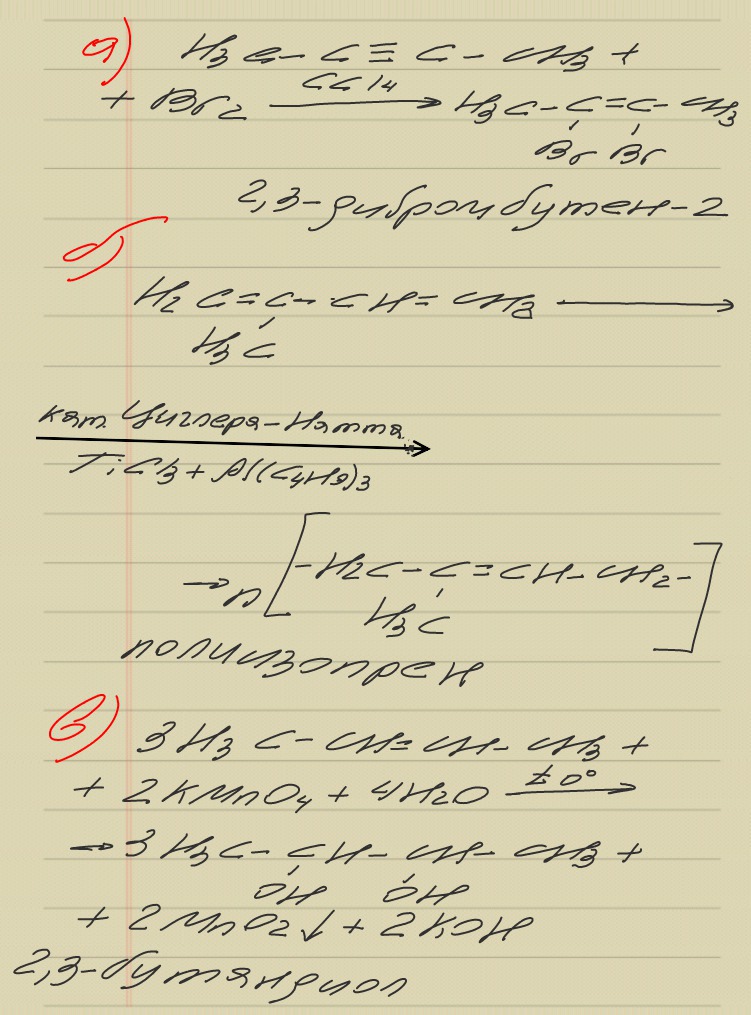 а) H3C - C ≡ C - CH3 +
+ Br2 CCl4 → H3C - C = C - CH3
Br Br
2,3 - дибромбутен - 2
б)
H2C = C - CH = CH3 →
H3C
кат. Циглера - Натта
TiCl3 + Al(C4H9)3
→ n [ - H2C - C = CH - CH2 - ]
H3C
полиизопрен
в) 3H3C - CH = CH - CH3 +
+ 2KMnO4 + 4H2O t 0° →
→ 3H3C - CH - CH - CH3 +
OH OH
+ 2MnO2↓ + 2KOH
2,3 - бутандиол